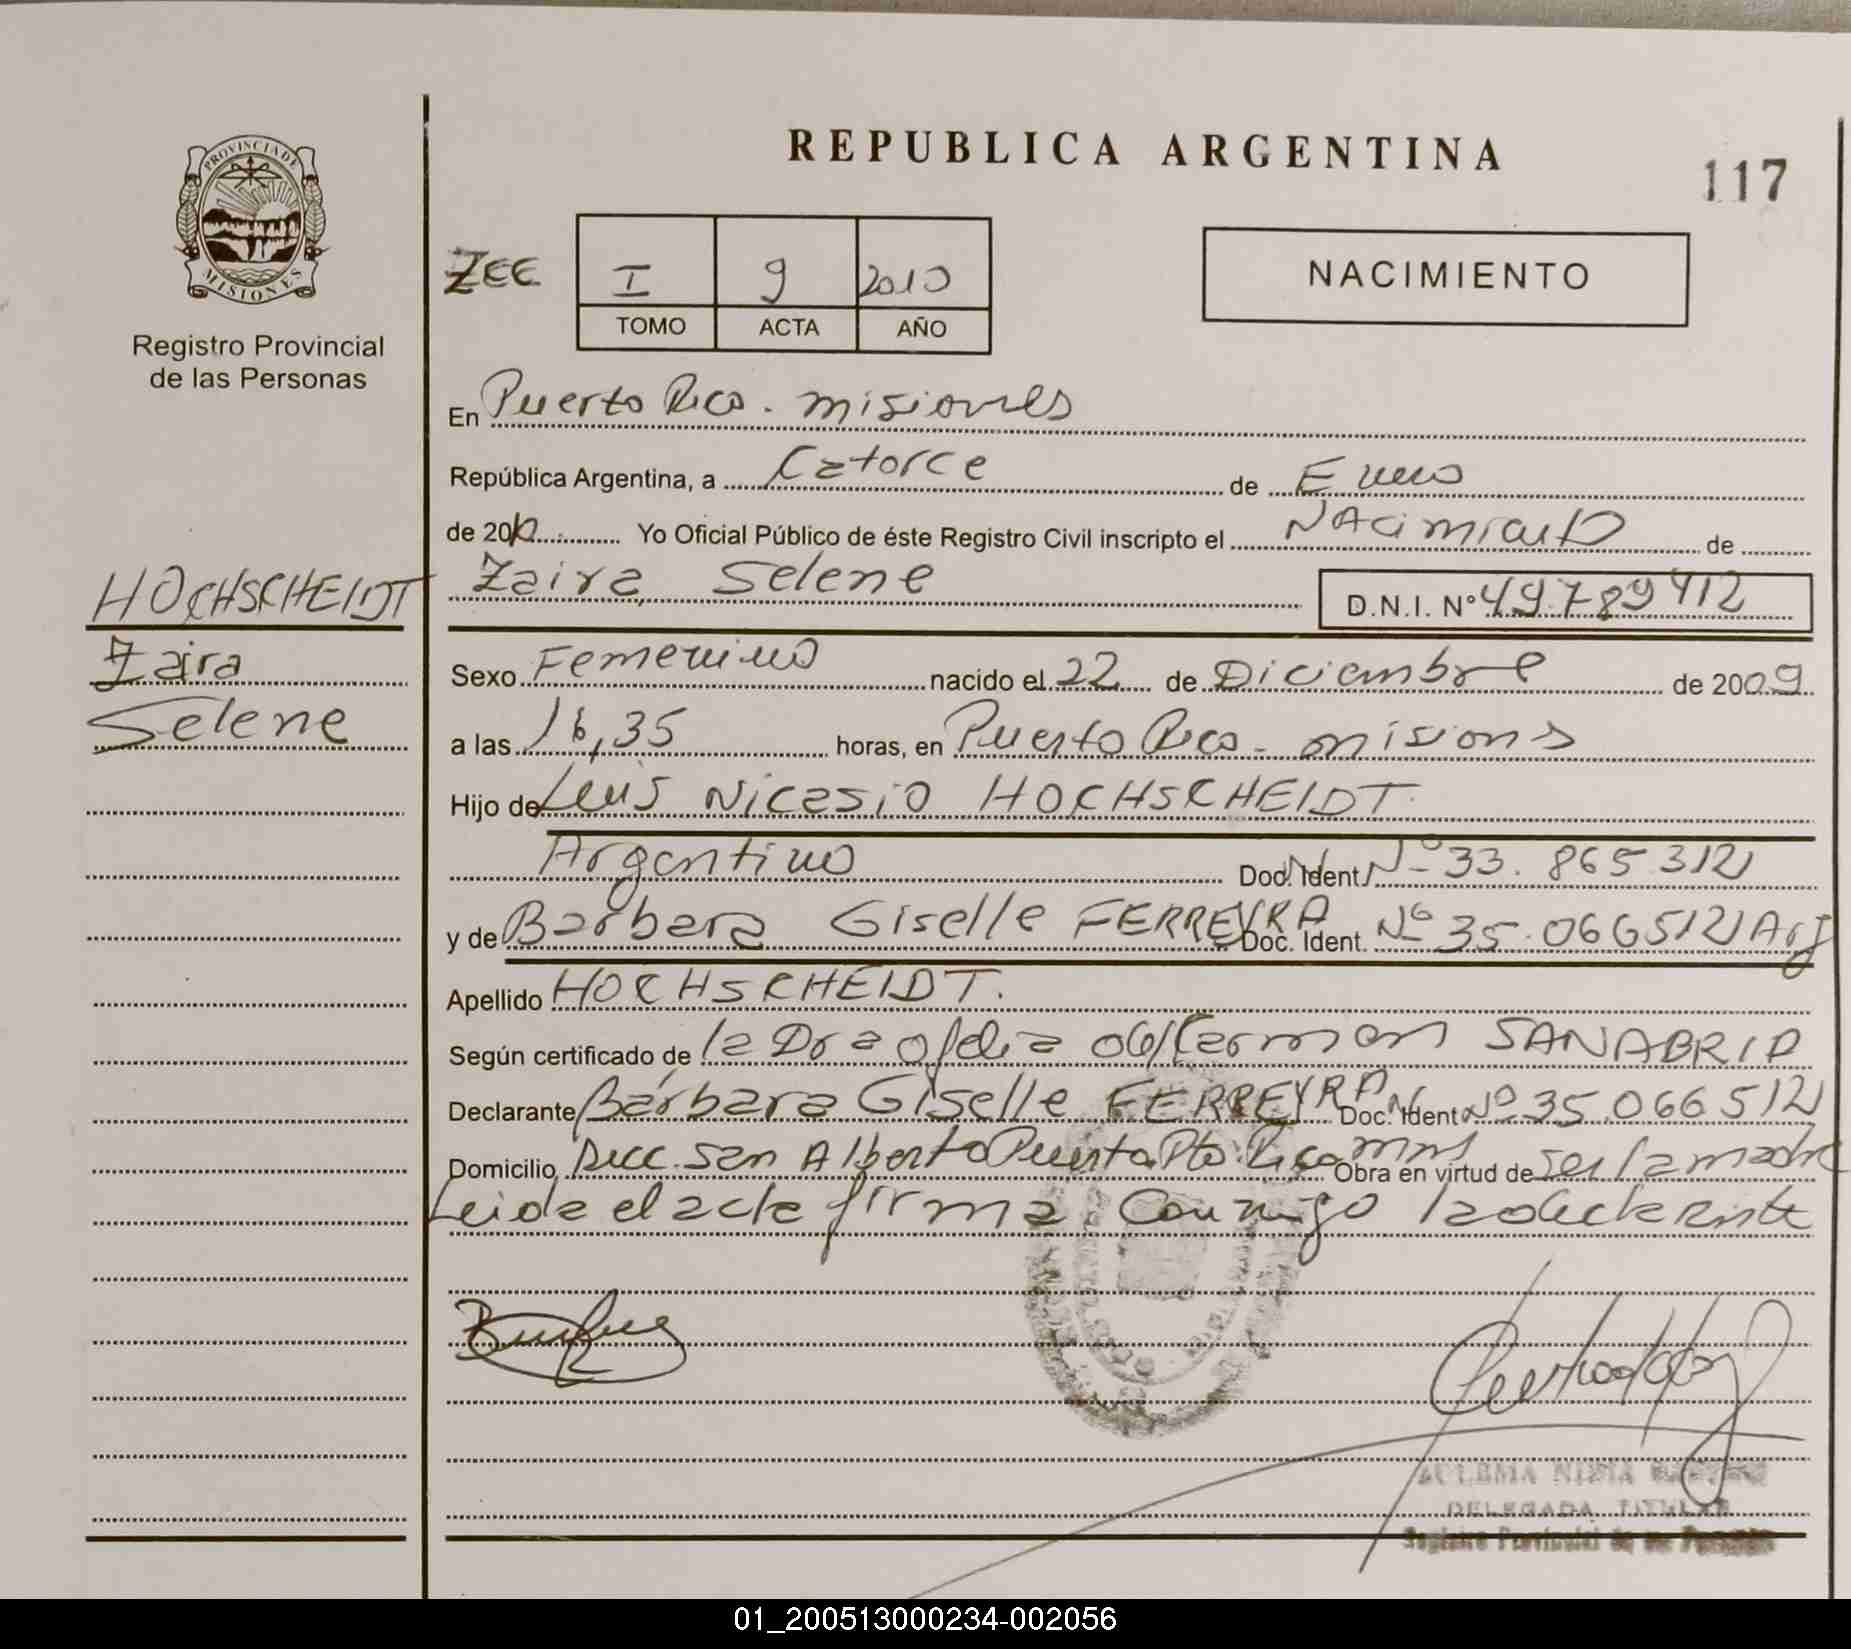 REPUBLICA ARGENTINA
117
PROVINCIA DE
MISIONES
Registro Provincial
de las Personas
ZEE
I 9 2010
TOMO ACTA AÑO
NACIMIENTO
En Puerto Rico. misiones
República Argentina, a Catorce de Enero
de 2010 Yo Oficial Público de éste Registro Civil inscripto el Nacimiento de
Zaira Selene D.N.I. N° 49.789412
HOCHSCHEIDT
Zaira
Selene
Sexo Femenino nacido el 22 de Diciembre de 2009
a las 16,35 horas, en Puerto Rico - misiones
Hijo de Luis Nicasio HOCHSCHEIDT
Argentino Doc. Ident. N° 33.865312
y de Bárbara Giselle FERREYRA Doc. Ident. N° 35.066512 Arg
Apellido HOCHSCHEIDT.
Según certificado de la Dra Ofelia del Carmen SANABRIA
Declarante Bárbara Giselle FERREYRA Doc. Ident N° 35.066512
Domicilio San Alberto Pto Rico mns Obra en virtud de ser la madre
Leida el acta firma Conmigo la declarante
DELEGADA TITULAR
Registro Provincial de las Personas
01_200513000234-002056